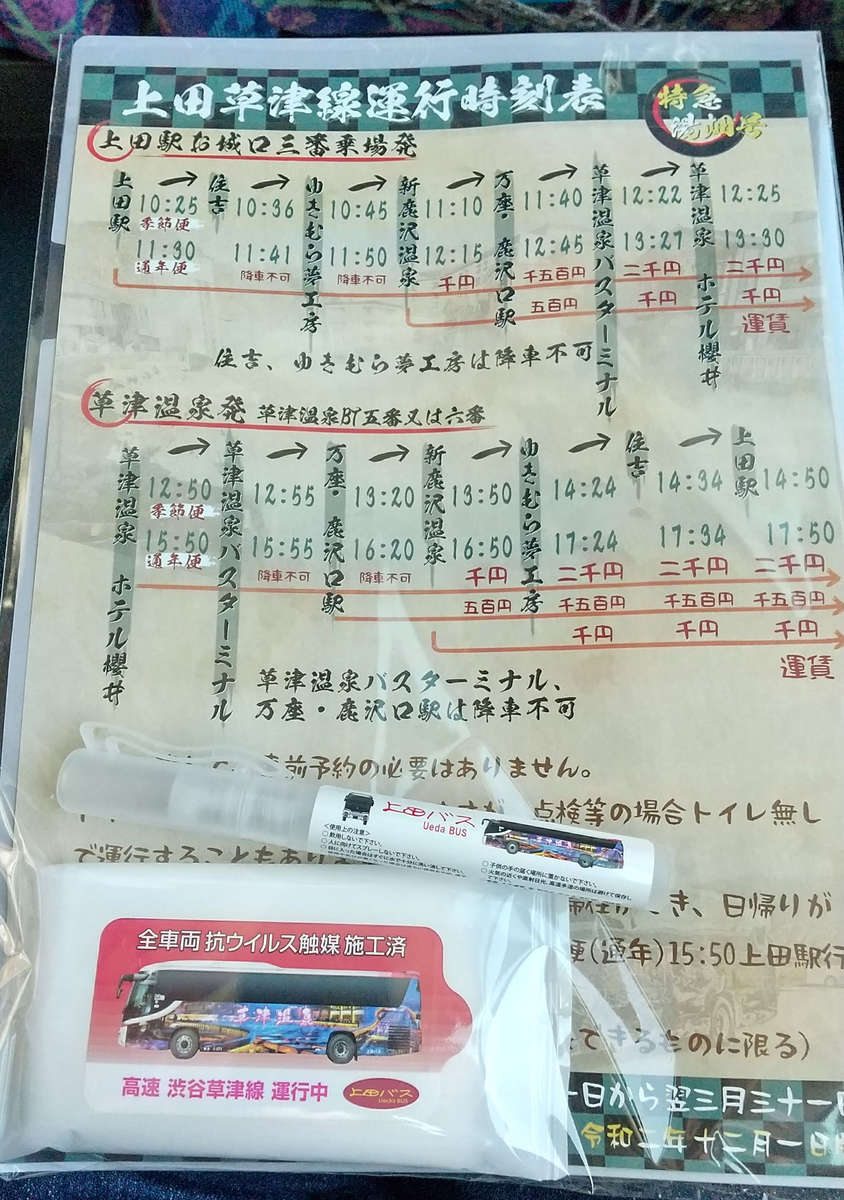 上田草津線運行時刻表
特急
湯畑号
上田駅お城口三番乗場発
上田駅 → 住吉 → ゆきむら夢工房 → 新鹿沢温泉 → 万座・鹿沢口駅 → 草津温泉バスターミナル → 草津温泉 ホテル櫻井
10:25 10:36 10:45 11:10 11:40 12:22 12:25
季節便
11:30 11:41 11:50 12:15 12:45 13:27 13:30
通年便 降車不可 降車不可 千円 千五百円 二千円 二千円
五百円 千円 千円
運賃
住吉、ゆきむら夢工房は降車不可
草津温泉発 草津温泉BT五番又は六番
草津温泉 ホテル櫻井 → 草津温泉バスターミナル → 万座・鹿沢口駅 → 新鹿沢温泉 → ゆきむら夢工房 → 住吉 → 上田駅
12:50 12:55 13:20 13:50 14:24 14:34 14:50
季節便
15:50 15:55 16:20 16:50 17:24 17:34 17:50
通年便 降車不可 降車不可 千円 二千円 二千円 二千円
五百円 千五百円 千五百円 千五百円
千円 千円 千円
運賃
草津温泉バスターミナル、
万座・鹿沢口駅は降車不可
前予約の必要はありません。
点検等の場合トイレ無し
で運行することもあり
き、日帰りが
便(通年)15:50上田駅行
できるものに限る)
日から翌三月三十一日
令和二年十二月一日
上田バス
Ueda BUS
<使用上の注意>
○飲用しないで下さい。
○人に向けてスプレーしないで下さい。
○目に入った場合はすぐに水で十分に洗い流して下さい。
○子供の手の届く場所に置かないで下さい。
○火気の近くや直射日光、高温多湿の場所は避けて保存し
て下さい。
全車両 抗ウイルス触媒 施工済
草津温泉
高速 渋谷草津線 運行中
上田バス
Ueda BUS